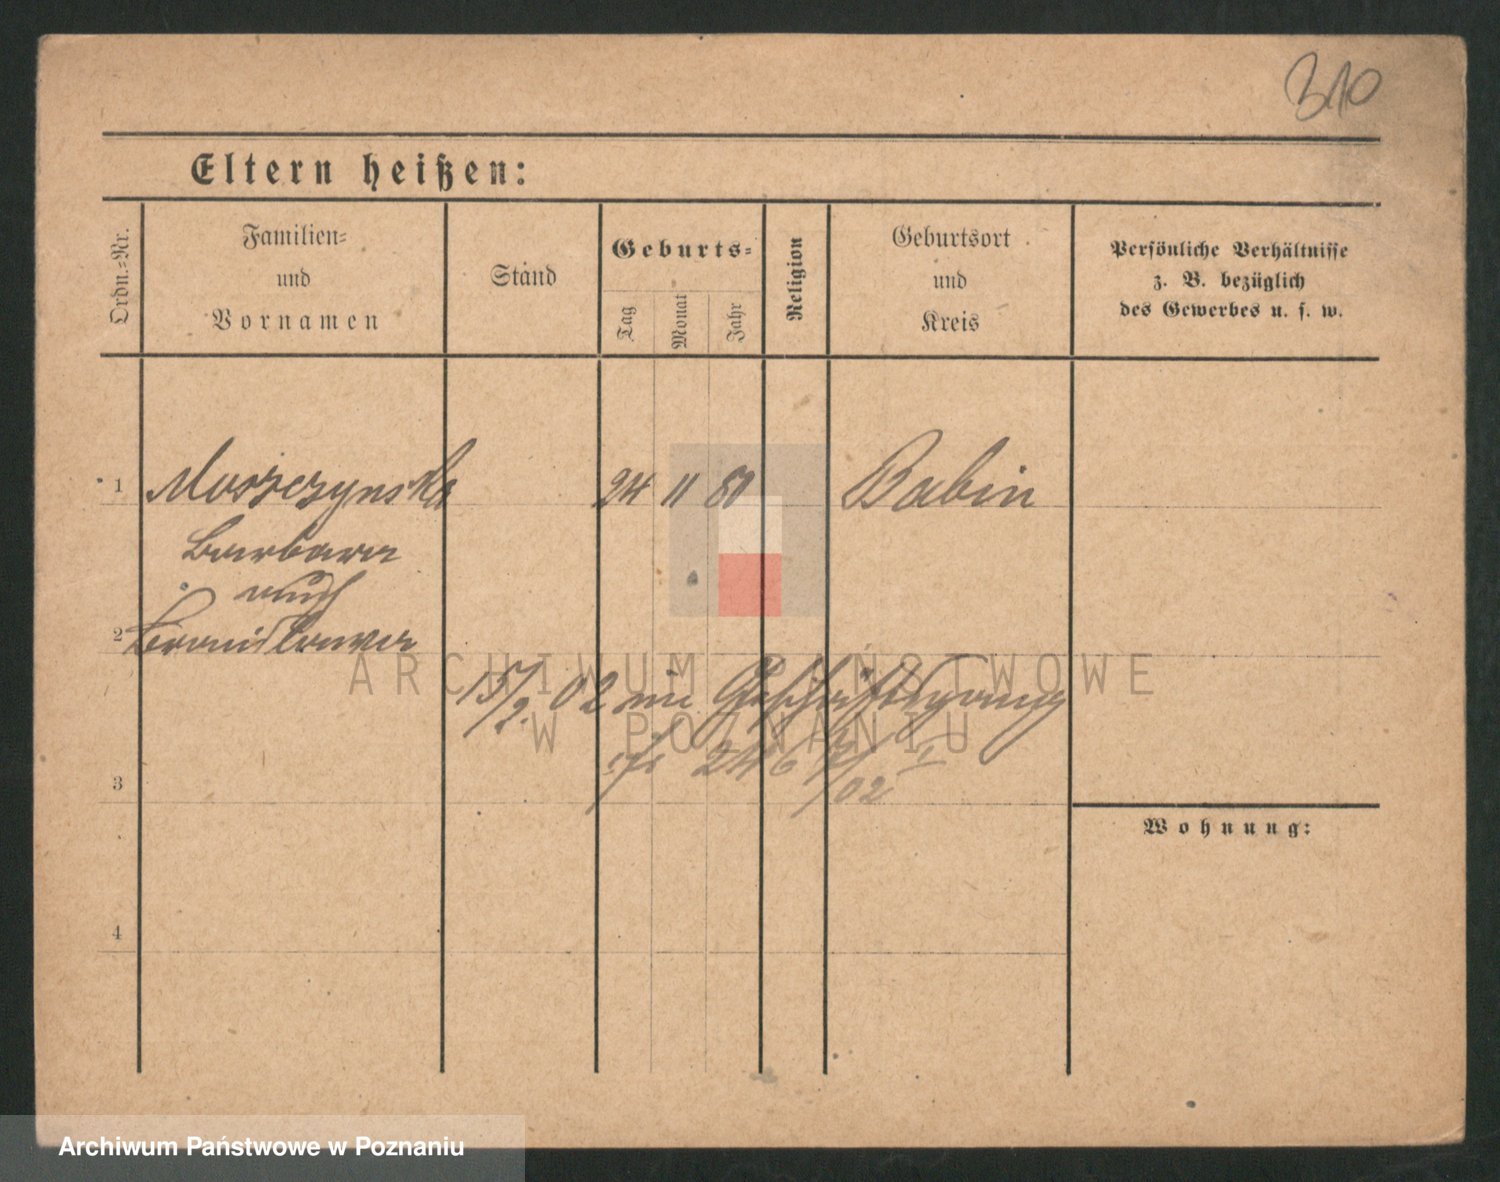 310
Eltern heißen:
Ordn.=Nr.
Familien=
und
Vornamen
Stand
Geburts=
Tag
Monat
Jahr
Religion
Geburtsort
und
Kreis
Persönliche Verhältnisse
z. B. bezüglich
des Gewerbes u. s. w.
1 Moszczynska 24 11 81 Babin
Barbara
auch
2 Bronislawa
ARCHIWUM PAŃSTWOWE
15/2. 02 im
W POZNANIU
246 02
3
Wohnung:
4
Archiwum Państwowe w Poznaniu